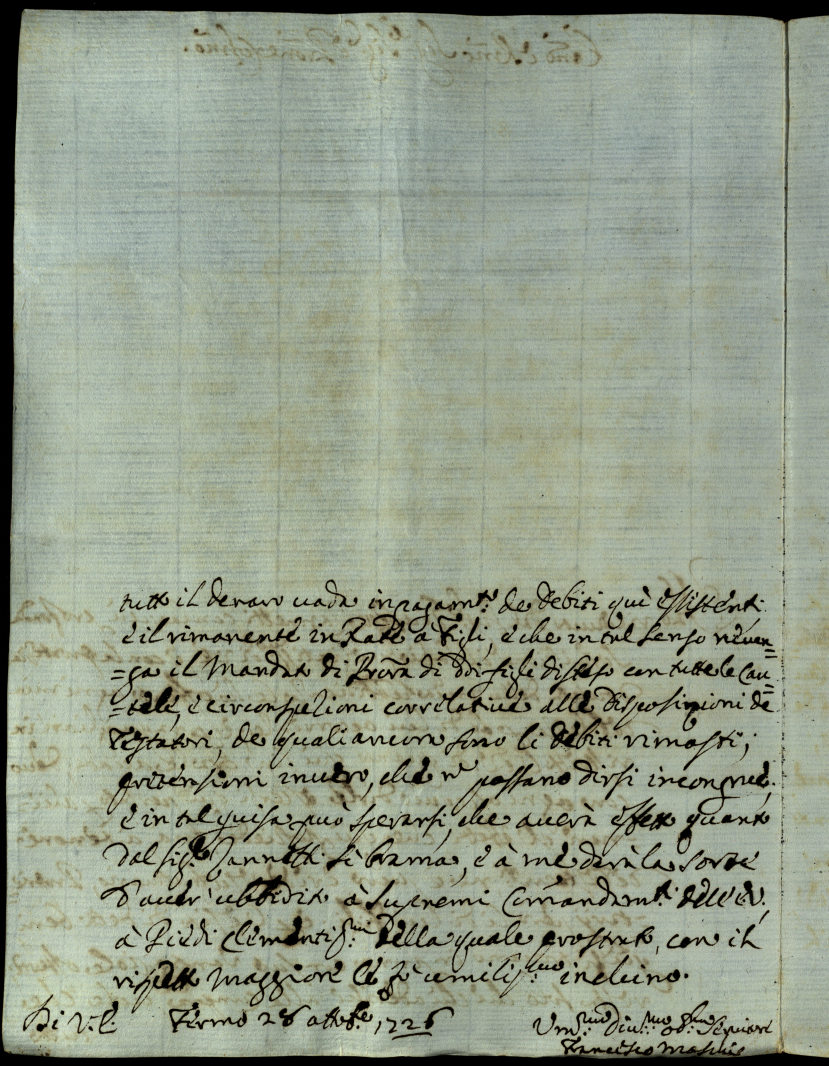 tutto il denaro vada in pagam.to de Debiti quì essistenti
è il rimanente in Rate a Figli, è che in tal senso nè ven=
=ga il Mandato di Proc.ra di Doi figli disteso con tutte le Cau=
=tele, è circonspezioni correlative alle Disposizioni de
Testatori, de quali ancora sono li debiti rimasti;
pretensioni in vero, che n. possano dirsi incongrue,
è in tal guisa può sperarsi, che averà effetto quanto
dal Sig.r Zannetti si brama, è à mè darà la sorte
d'aver ubbidito à Supremi Comandam.ti dell'E.V.
à Piedi Clementiss.mi della quale prostrato, con il
rispetto maggiore le fò umiliss.mo inchino.
Di V.E. Fermo 28 ottob.e 1726
Um.mo Div.mo Ob.mo Servitore
Francesco